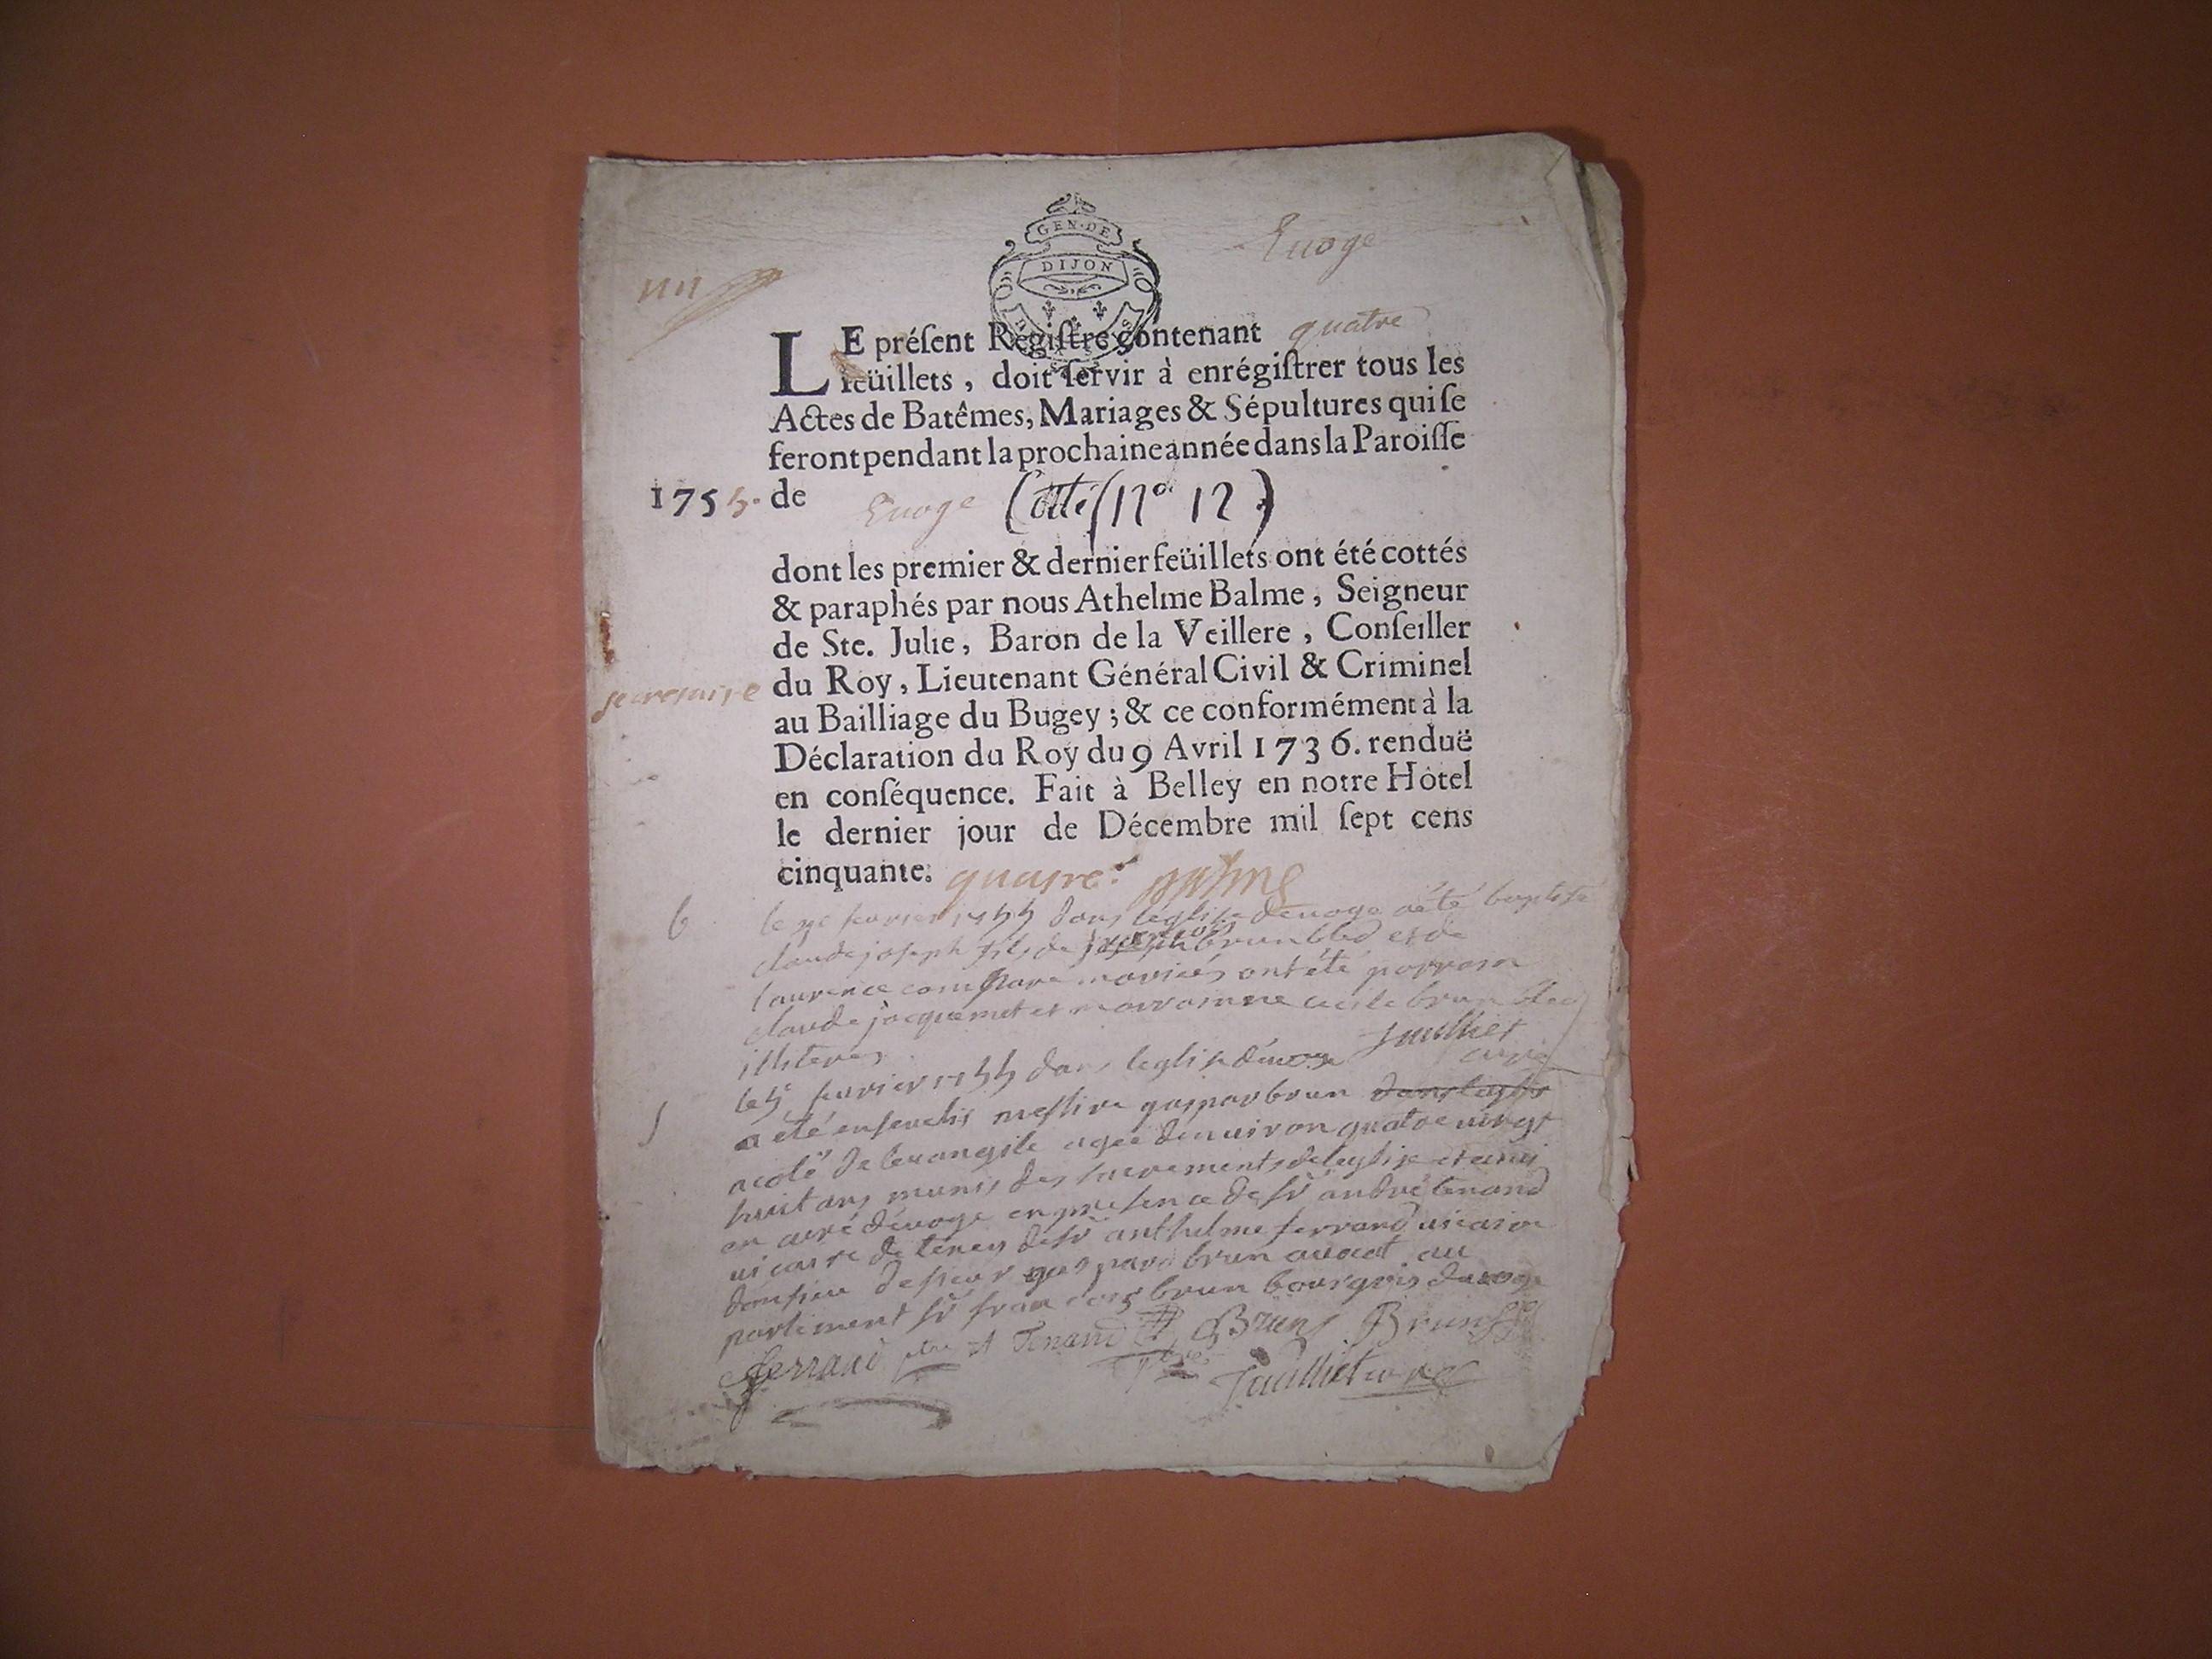 GEN·DE
DIJON
Euoge
LE préſent Regiſtre contenant quatre
feüillets, doit ſervir à enrégiſtrer tous les
Actes de Batêmes, Mariages & Sépultures qui ſe
feront pendant la prochaine année dans la Paroiſſe
1755. de Euoge (Cotte N° 12)
dont les premier & dernier feüillets ont été cottés
& paraphés par nous Athelme Balme, Seigneur
de Ste. Julie, Baron de la Veillere, Conſeiller
secretaire du Roy, Lieutenant Général Civil & Criminel
au Bailliage du Bugey; & ce conformément à la
Déclaration du Roy du 9 Avril 1736. renduë
en conſéquence. Fait à Belley en notre Hôtel
le dernier jour de Décembre mil ſept cens
cinquante. quatre.
b le fevrier 1755 dans leglise deuoge a été baptisé
claude joseph fils de brunbled et de
laurence mariés ont été parrain
claude jacquemet et marrainne cecile brun bled
illiteres. Juilliet
curé
le 5 fevrier 1755 dans leglise deuoge
s a été enseuelis messire gaspar brun dans leglise
a coté de leuangile agée denuiron quatre vingt
huit ans munis des sacrements de leglise
en curé deuoge en presence de sr andré tenand
uicaire de tenay de sr anthelme ferrand uicaire
de sieur gaspard brun auocat au
parlement sr francois brun bourgois deuoge
ferrand ptre A Tenand Brun Brun
Juilliet curé